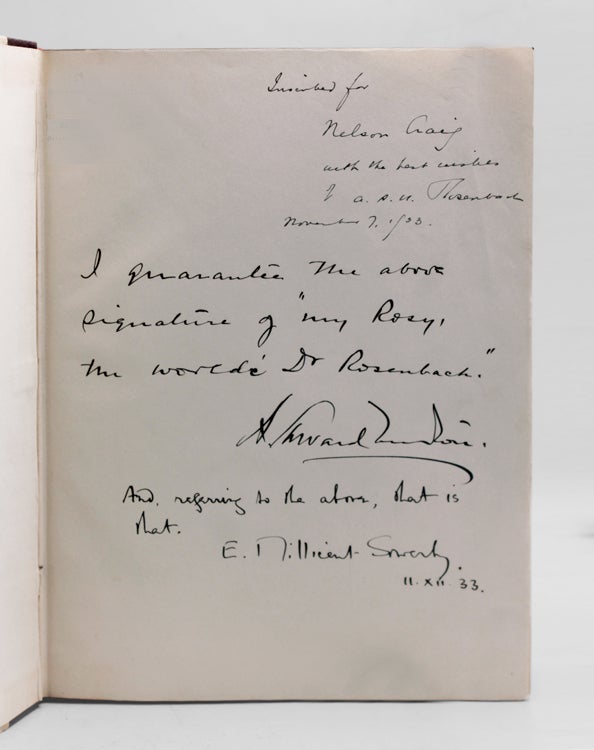 Inscribed for
Nelson Craig
with the best wishes
of A. S. W. Rosenbach
November 7, 1933.
I guarantee the above
signature of "my Rosy,
the world's Dr Rosenbach."
A. Edward Newton.
And, referring to the above, that is
that.
E. Millicent Sowerby.
11. XII. 33.